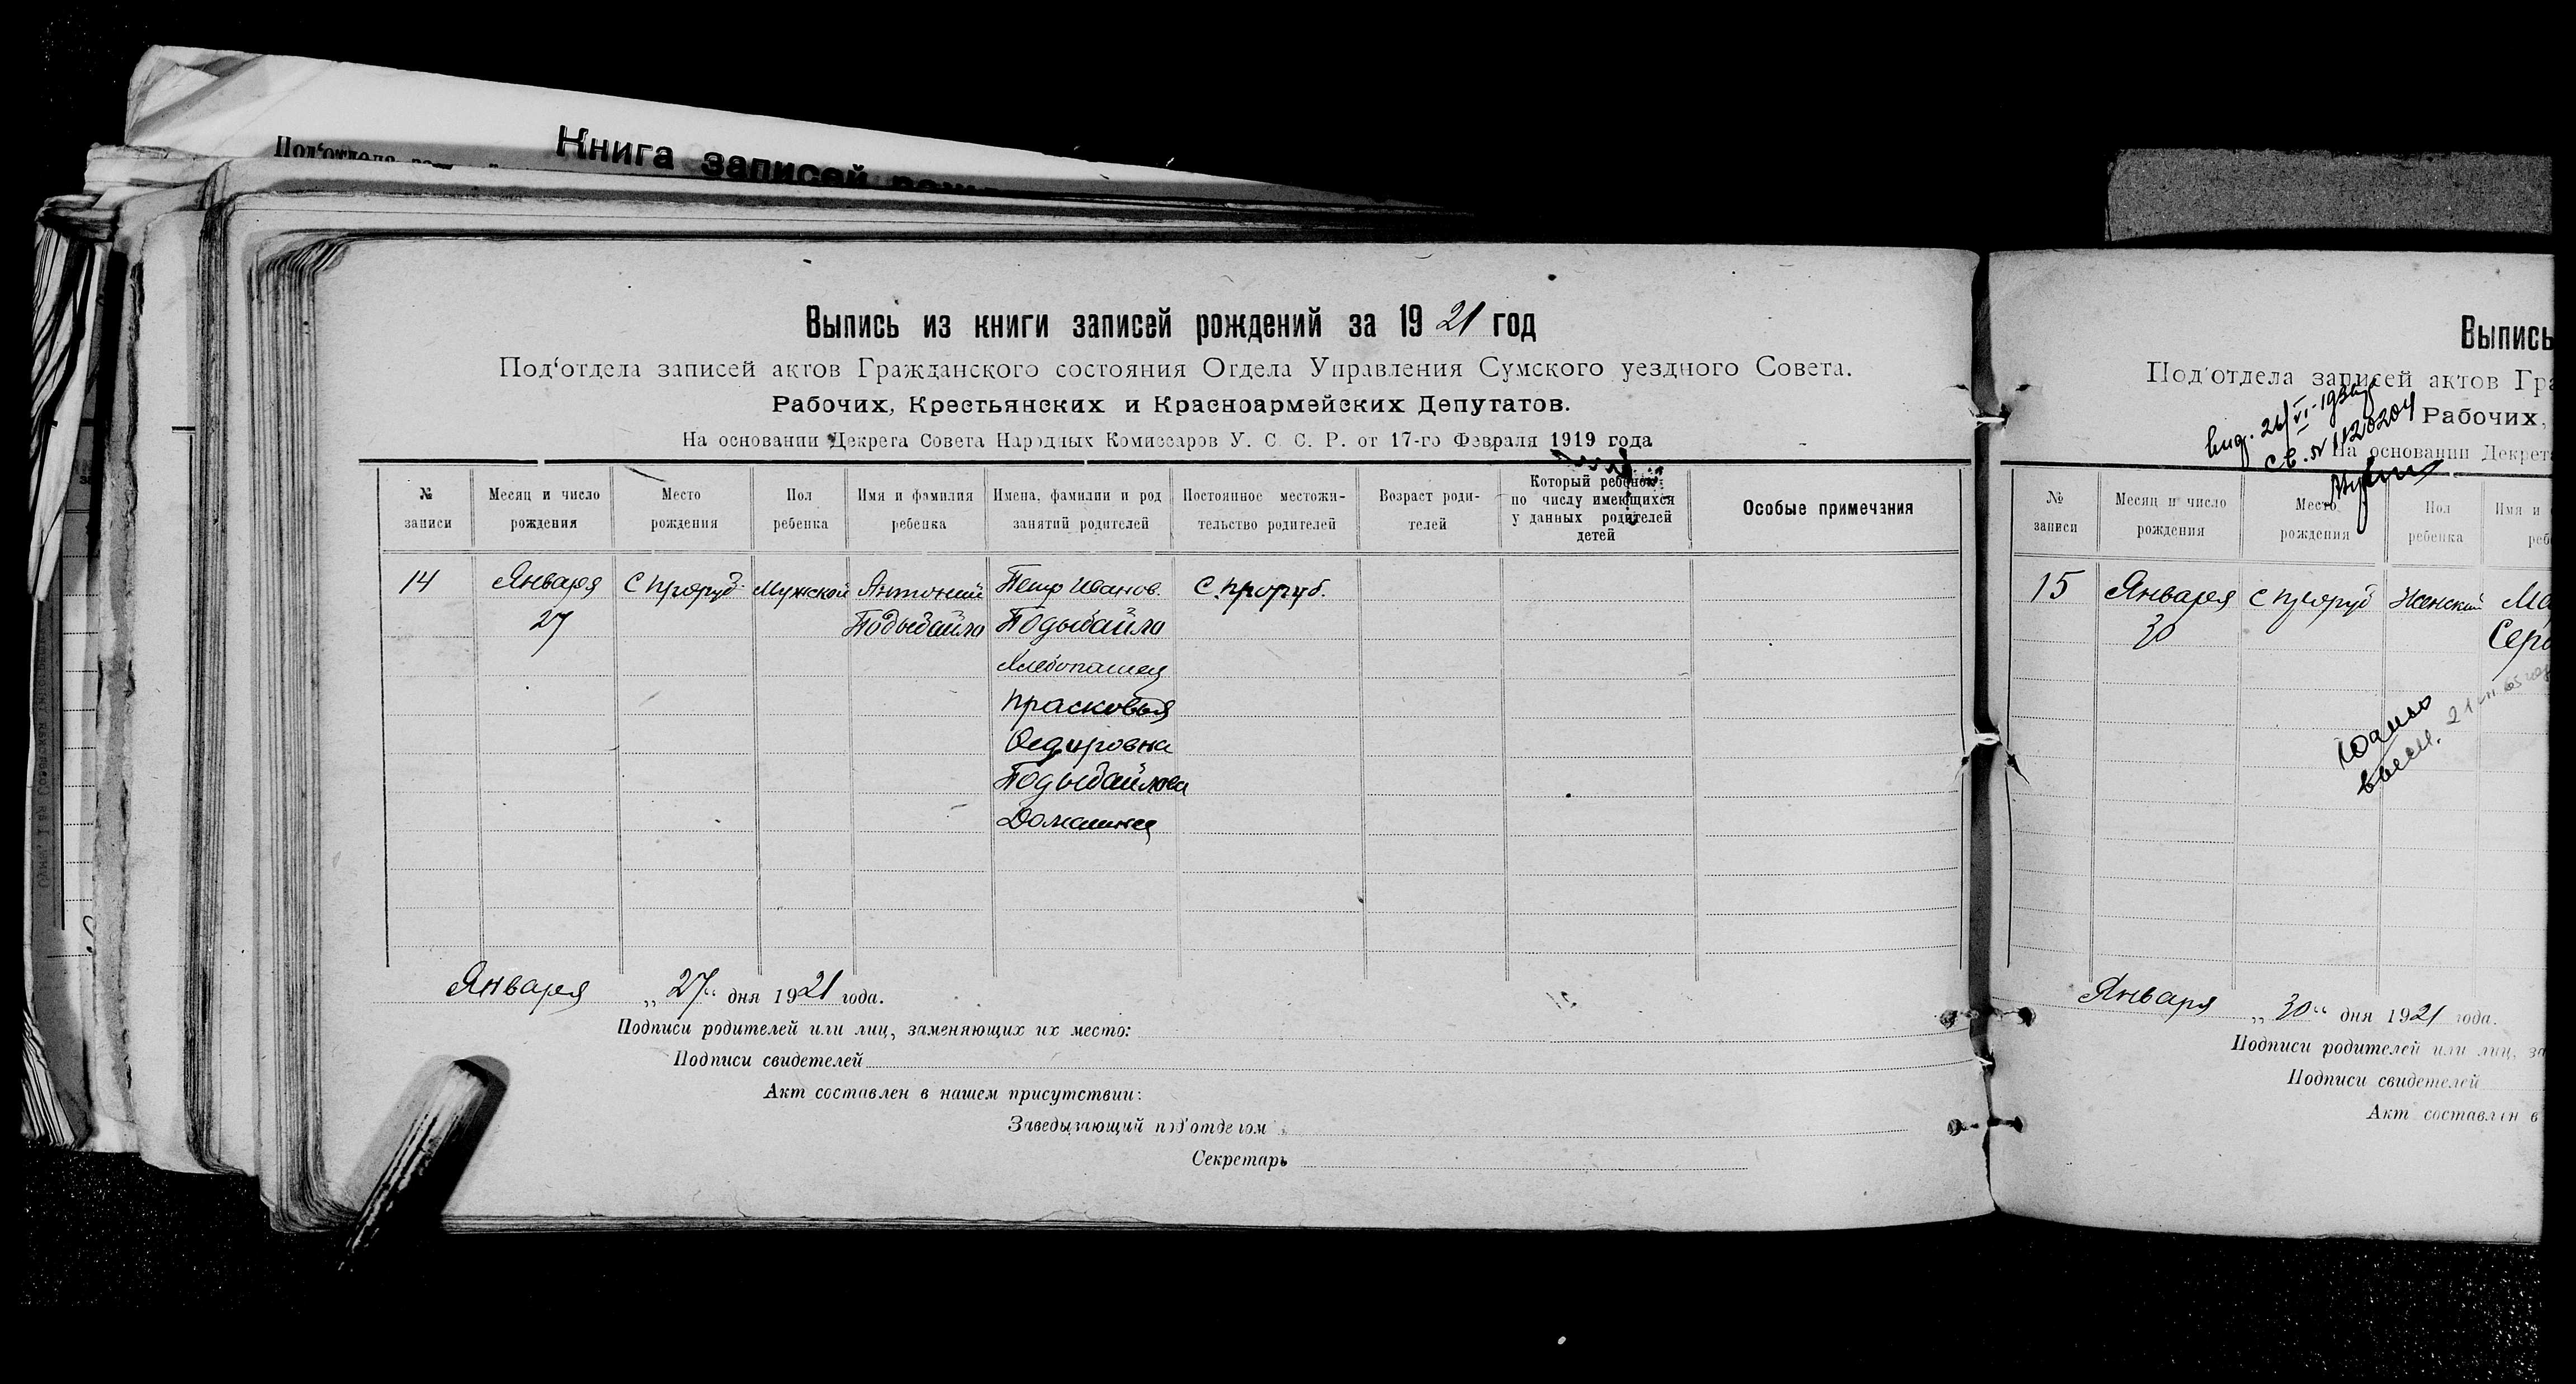 Книга записей
Выпись из книги записей рождений за 1921 год
Под‘отдела записей актов Гражданского состояния Отдела Управления Сумского уездного Совета.
Рабочих, Крестьянских и Красноармейских Депутатов.
На основании Декрета Совета Народных Комиссаров У. С. С. Р. от 17-го Февраля 1919 года
№ записи
Месяц и число рождения
Место рождения
Пол ребенка
Имя и фамилия ребенка
Имена, фамилии и род занятий родителей
Постоянное местожительство родителей
Возраст родителей
Который ребенок по числу имеющихся у данных родителей детей
Особые примечания
14 Января С Проруб. Мужской Антоний Петр Иванов. С. Проруб.
27 Подывайло Подывайло
Хлебопашец
Прасковья
Федоровна
Подывайлова
Домашнец
Января „ 27 “ дня 1921 года.
Подписи родителей или лиц, заменяющих их место:
Подписи свидетелей
Акт составлен в нашем присутствии:
Заведызающий под‘отделом
Секретарь
Выпись
Под‘отдела записей актов
Рабочих,
На основании
№ записи
Месяц и число рождения
Место рождения
Пол ребенка
Имя и
15 Января С Проруб Женский
30
Января „ 30 “ дня 1921 года.
Подписи родителей или лиц,
Подписи свидетелей
Акт составлен в